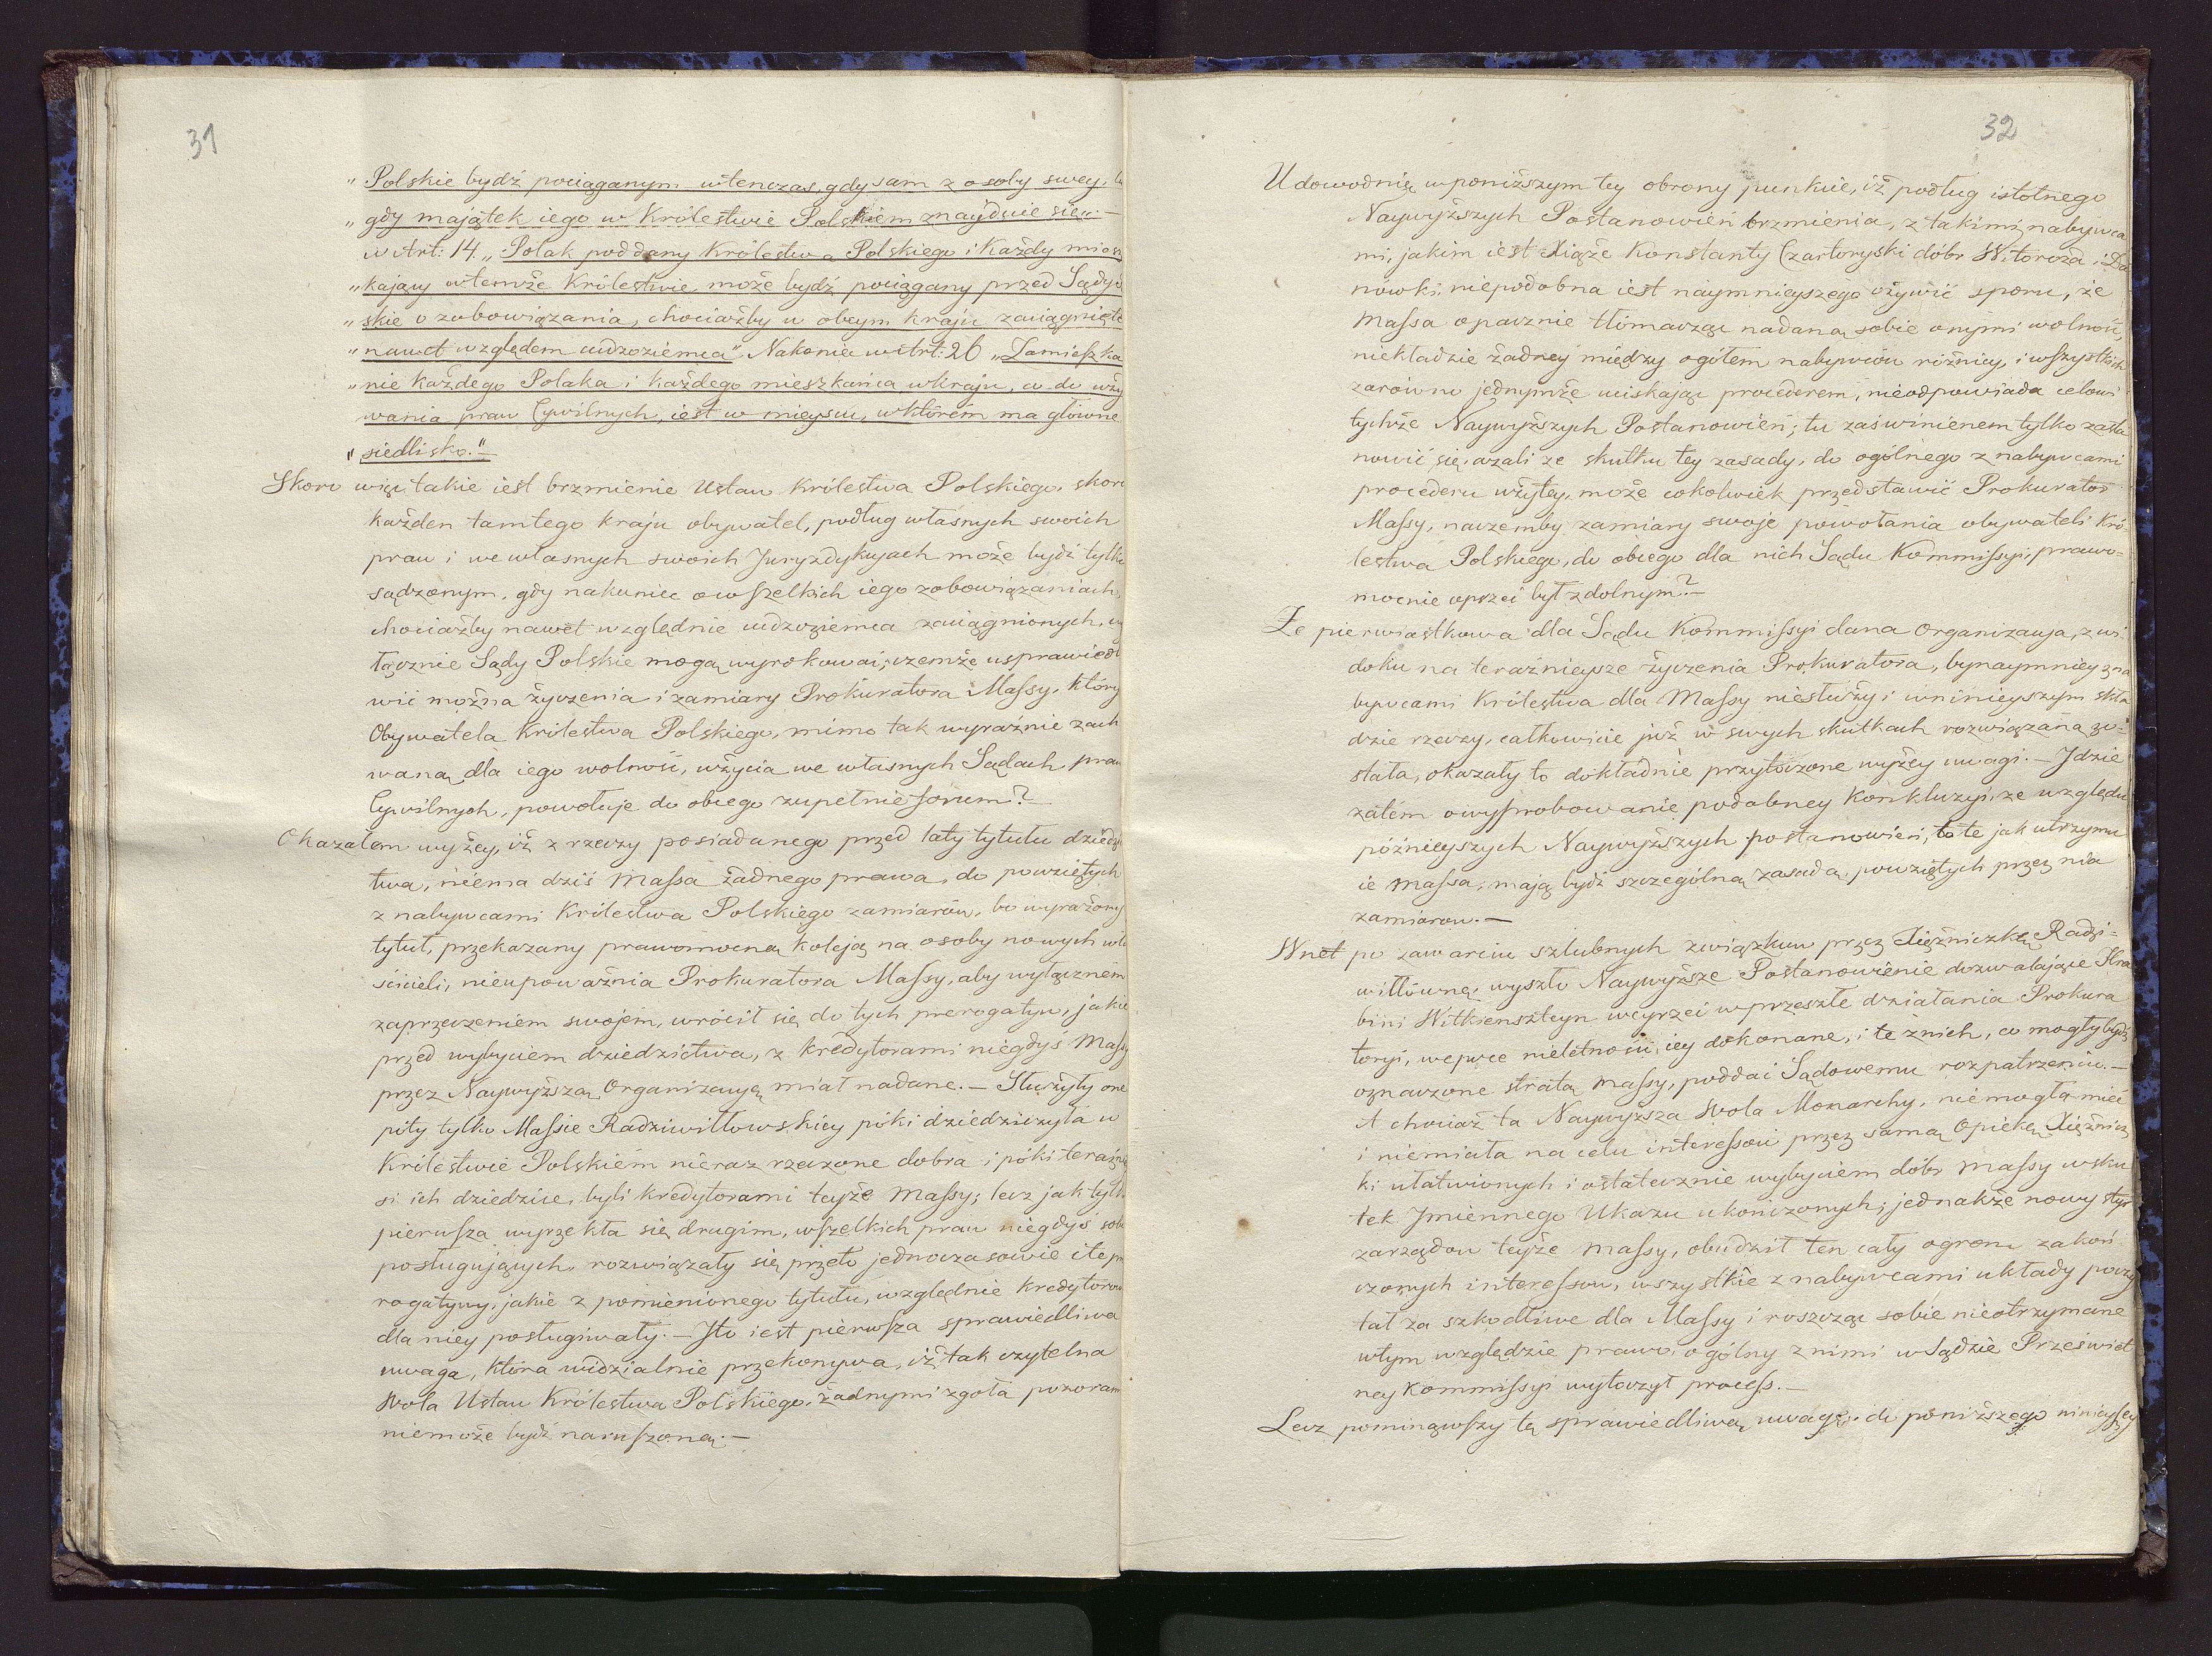 31
„Polskie bydź pociąganym wtenczas, gdy sam z osoby swey, lu
„gdy majątek iego w Królestwie Polskiem znayduie się„.—
w Art: 14. „Polak poddany Królestwa Polskiego i Każdy miesz
„kaiący wtemże Królestwie, może bydź pociągany przed Sądy
„skie o zobowiązania, chociażby w obcym kraju zaciągnięte
„nawet względem cudzoziemca“. Nakoniec w Art: 26 „Zamieszka
„nie każdego Polaka i każdego mieszkańca w kraju, co do uży
wania praw Cywilnych, iest w mieyscu, w którém ma główne
„siedlisko.“—
Skoro więc takie iest brzmienie Ustaw Królestwa Polskiego, skoro
każden tamtego kraju obywatel, podług własnych swoich
praw i we własnych swoich Juryzdykcyach może bydź tylko
sądzonym, gdy nakoniec o wszelkich iego zobowiązaniach,
chociażby nawet względnie cudzoziemca zaciągnionych, wy
łącznie Sądy Polskie mogą wyrokować; czemże usprawiedl
wić można życzenia i zamiary Prokuratora Massy, który
Obywatela Królestwa Polskiego, mimo tak wyraźnie zach
waną dla iego wolność, użycia we własnych Sądach praw
Cywilnych, powołuje do obcego zupełnie forum?—
Okazałem wyżey, iż z rzeczy posiadanego przed laty tytułu dziedzi
twa, niema dziś Massa żadnego prawa, do powziętych
z nabywcami Królestwa Polskiego zamiarów, bo wyrażony
tytuł, przekazany prawomocną koleją na osoby nowych wła
ścicieli, nieupoważnia Prokuratora Massy, aby wyłącznem
zaprzeczeniem swojem, wrócił się do tych prerogatyw, jakie
przed wybyciem dziedzictwa, z kredytorami niegdyś Massy
przez Naywyższą Organizacyą miał nadane.— Służyły one
póty tylko Massie Radziwiłłowskiey póki dziedziczyła w
Królestwie Polskiém nieraz rzeczone dobra i póki teraźniey
si ich dziedzice, byli kredytorami teyże Massy; lecz jak tylko
pierwsza wyrzekła się drugim, wszelkich praw niegdyś sobie
posługujących, rozwiązały się przeto jednoczasowie i te pre
rogatywy, jakie z pomienionego tytułu, względnie kredytorow
dla niey posługiwały.— Jto iest pierwsza sprawiedliwa
uwaga, która widzialnie przekonywa, iż tak czytelna
Wola Ustaw Królestwa Polskiego, żadnymi zgoła pozorami
niemoże bydź naruszoną.—
32
Udowodnię w poniższym tey obrony punkcie, iż podług istotnego
Naywyższych Postanowień brzmienia, z takimi nabywca
mi, jakim iest Xiąże Konstanty Czartoryski dóbr Witoroża i Da
nówki, niepodobna iest naymnieyszego ożywić sporu, że
Massa opacznie tłómacząc nadaną sobie onymi wolność,
niekładzie żadney między ogółem nabywców różnicy, i wszystkich
zarówno jednymże uciskając procederem, nieodpowiada celowi
tychże Naywyższych Postanowień; tu zaś winienem tylko zasta
nowić się, azali ze skutku tey zasady, do ogólnego z nabywcami
procederu użytey, może cokolwiek przedstawić Prokurator
Massy, naczemby zamiary swoje powołania obywateli Kró-
lestwa Polskiego, do obcego dla nich Sądu Kommissyi, prawo-
mocnie oprzeć był zdolnym?—
Że pierwiastkowa dla Sądu Kommissyi dana Organizacya, z wi
doku na teraźnieysze życzenia Prokuratora, bynaymniey z na
bywcami Królestwa dla Massy niesłuży i w ninieyszym skła
dzie rzeczy, całkowicie już w swych skutkach rozwiązaną zo-
stała, okazały to dokładnie przytoczone wyżey uwagi.— Jdzie
zatém o wyprobowanie podobney Konkluzyi, ze względu
późnieyszych Naywyższych postanowień, bo te jak utrzymu
ie Massa, mają bydź szczególną zasadą, powziętych przez nią
zamiarow.—
Wnet po zawarciu szlubnych związkow przez Xiężniczkę Radzi-
wiłłównę, wyszło Naywyższe Postanowienie dozwalające Hra
bini Witkiensteyn weyrzeć w przeszłe działania Prokura
toryi, w epoce nieletności iey dokonane, i te z nich, co mogły bydź
oznaczone stratą Massy, poddać Sądowemu rozpatrzeniu.—
A chociaż ta Naywyższa Wola Monarchy, niemogła mieć
i niemiała na celu interessow przez samą Opiekę Xiężnicz
ki ułatwionych i ostatecznie wybyciem dóbr Massy w sku
tek Jmiennego Ukazu ukończonych; jednakże nowy styr
zarządow teyże Massy, obudził ten cały ogrom zakoń
czonych interessow, wszystkie z nabywcami układy poczy
tał za szkodliwe dla Massy i roszcząc sobie nieotrzymane
w tym względzie prawo, ogólny z nimi w Sądzie Przeświet
ney Kommissyi wytoczył process.—
Lecz pominąwszy tę sprawiedliwą uwagę, do poniższego ninieyszey